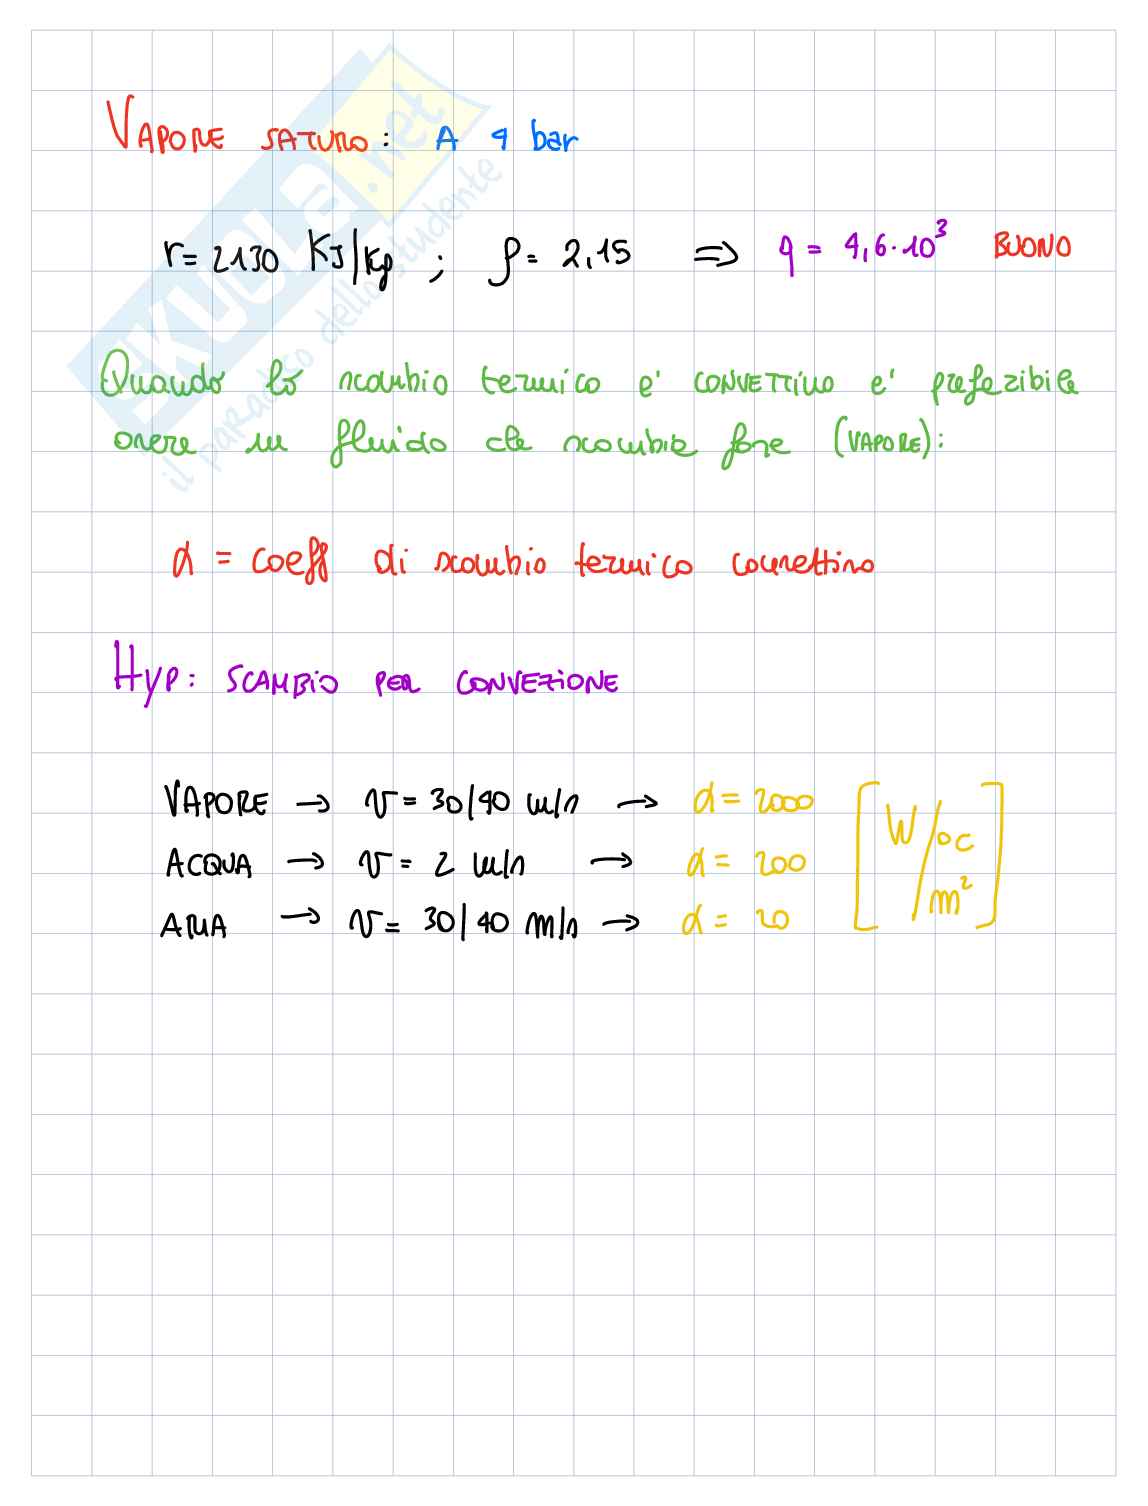 VAPORE SATURO: A 4 bar
r= 2130 KJ/Kg ; ρ= 2,15 ⇒ q = 4,6·10³ BUONO
Quando lo scambio termico e' CONVETTIVO e' preferibile
avere un fluido che scambia fase (VAPORE):
α = coeff di scambio termico convettivo
HYP: SCAMBIO PER CONVEZIONE
VAPORE → v = 30/40 m/s → α = 2000 [W/°C
ACQUA → v = 2 m/s → α = 200 /m²]
ARIA → v = 30/40 m/s → α = 20
SKUOLA.net
il paradiso dello studente